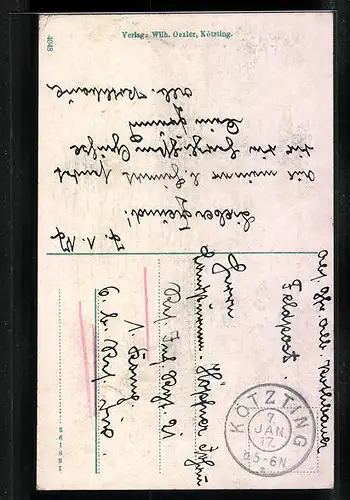 4048
Verlag: Wilh. Oexler, Kötzting.
7. 1. 17
Lieber Freund!
Aus meiner l. Heimat sendet
dir die herzlichsten Grüße
Dein
Alb. Kohlbauer
Alb. Kohlbauer
Feldpost.
Herrn
Höpfner
Res. Inf. Rgt. 21
1. Komp.
6. b. Res. Div.
KÖTZTING
7
JAN
17.
5-6N